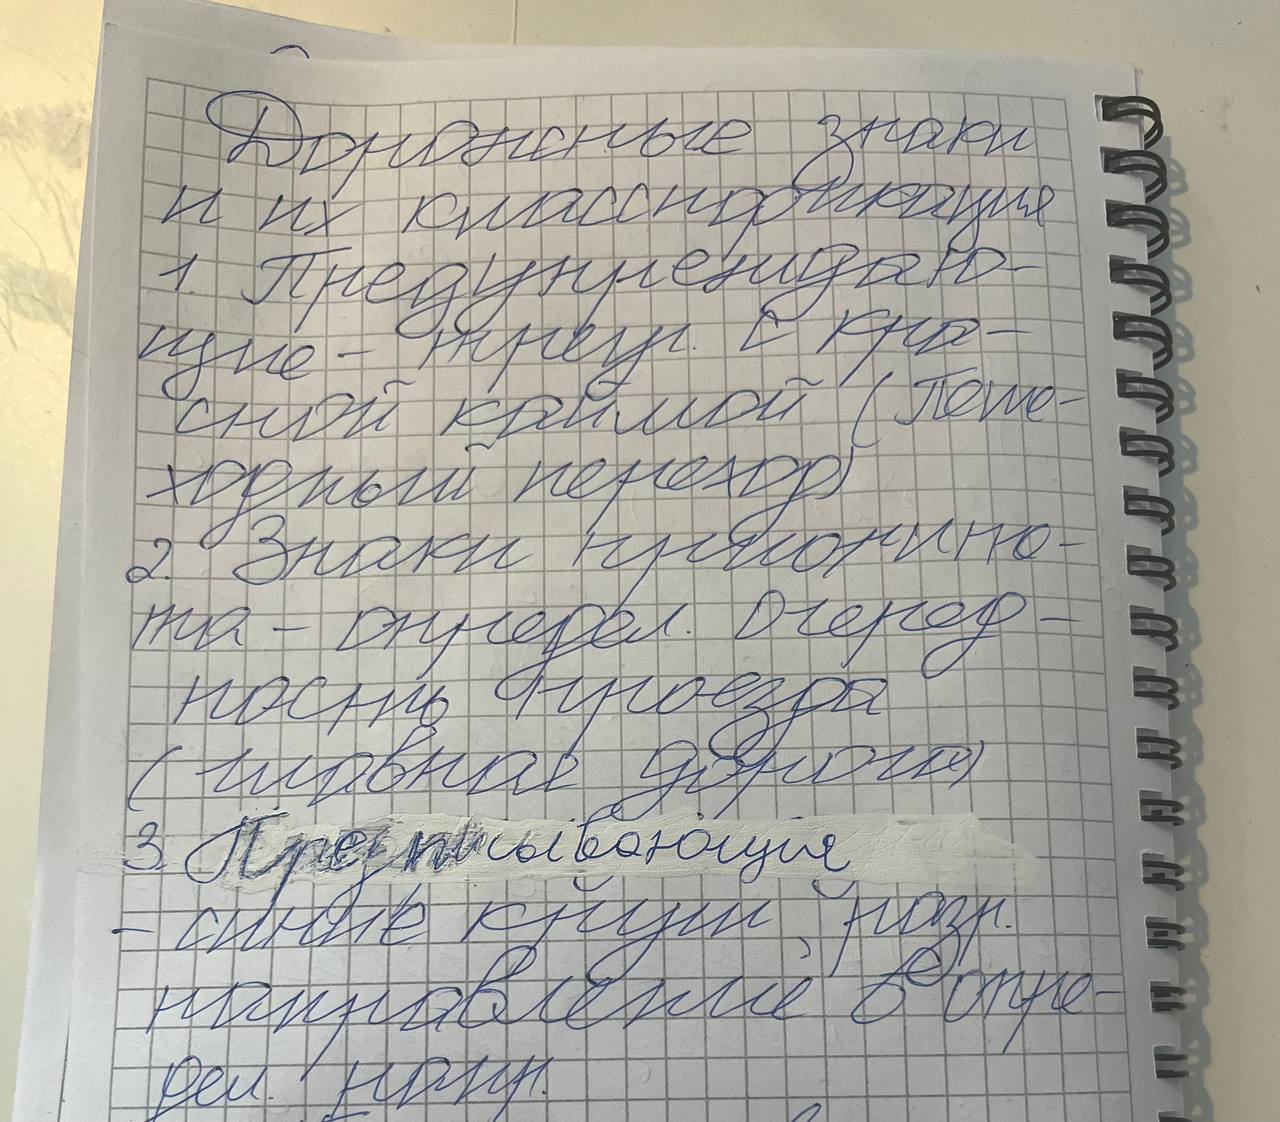 Дорожные знаки
и их классификация
1. Предупреждаю-
щие - треуг. с кра-
сной каймой (Пеше-
ходный переход)
2. Знаки приорите-
та - определ. очеред-
ность проезда
(главная дорога)
3. Предписывающия
- синие круги, разр.
направление в опре-
дел. напр.